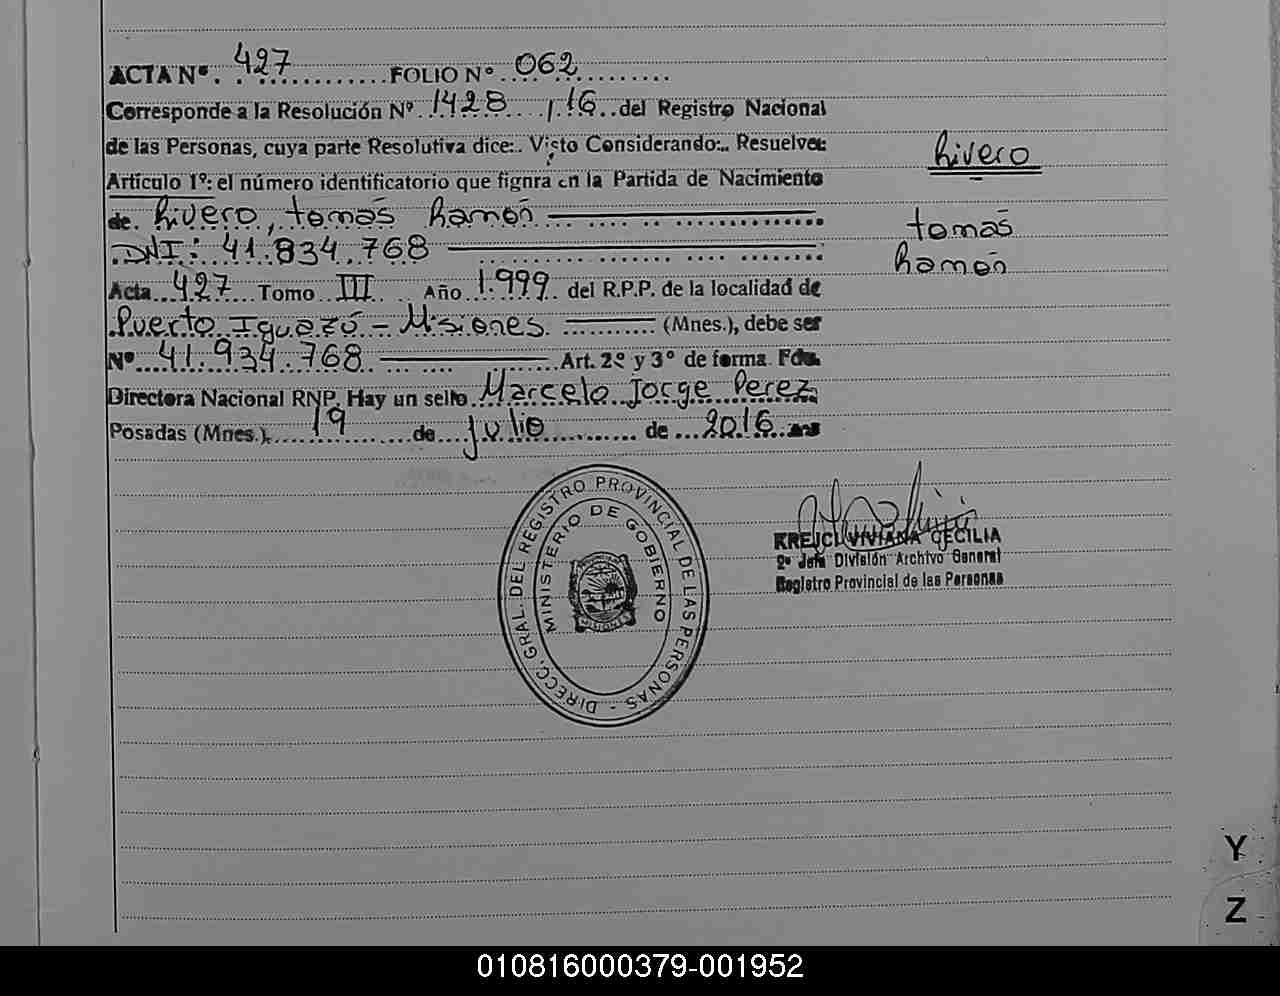 ACTA Nº. 427 FOLIO Nº 062
Corresponde a la Resolución Nº 1428 / 16 del Registro Nacional
de las Personas, cuya parte Resolutiva dice:. Visto Considerando:. Resuelve:
Artículo 1º: el número identificatorio que fignra en la Partida de Nacimiento
de. Rivero, tomás Ramón
DNI: 41.834.768
Acta 427 Tomo III Año 1.999 del R.P.P. de la localidad de
Puerto Iguazú - Misiones. (Mnes.), debe ser
Nº 41.934.768 Art. 2º y 3º de forma. Fdo.
Directora Nacional RNP. Hay un sello Marcelo Jorge Perez
Posadas (Mnes.), 19 de julio de 2016
Rivero
tomás
Ramón
DIRECC. GRAL. DEL REGISTRO PROVINCIAL DE LAS PERSONAS -
MINISTERIO DE GOBIERNO
MISIONES
KREJCI VIVIANA CECILIA
2º Jefa División Archivo General
Registro Provincial de las Personas
Y
Z
010816000379-001952